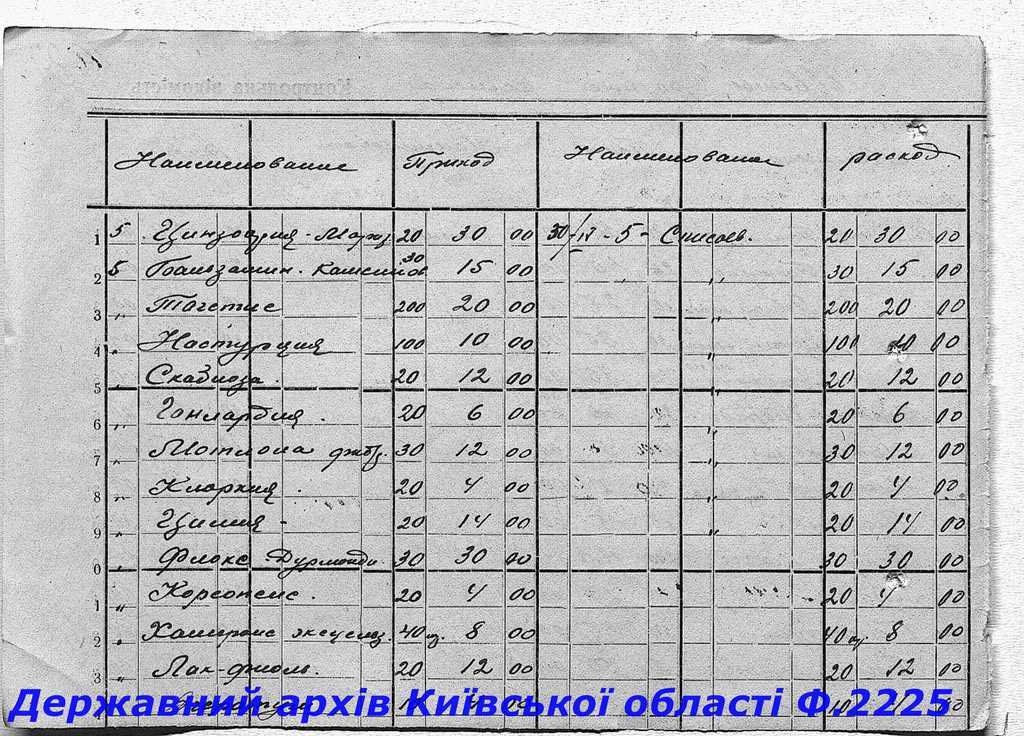 Контрольна відомість
Наименование Приход Наименование расход
1 5 Цинзария-Марг. 20 30 00 30/IV - 5 - Списав. 20 30 00
2 5 Бальзамин. Камелиев 30 15 00 " 30 15 00
3 " Тагетис 200 20 00 " 200 20 00
4 " Настурция 100 10 00 " 100 10 00
5 " Скабиоза. 20 12 00 " 20 12 00
6 " Гаилардия. 20 6 00 " 20 6 00
7 " 30 12 00 " 30 12 00
8 " Кларкия. 20 4 00 " 20 4 00
9 " Циния - 20 14 00 " 20 14 00
0 " Флокс Друмонди. 30 30 00 30 30 00
1 " Кореопсис. 20 4 00 20 4 00
2 " 40 гр. 8 00 40 гр. 8 00
3 " Лак-фиоль. 20 12 00 20 12 00
Державний архів Київської області Ф.2225